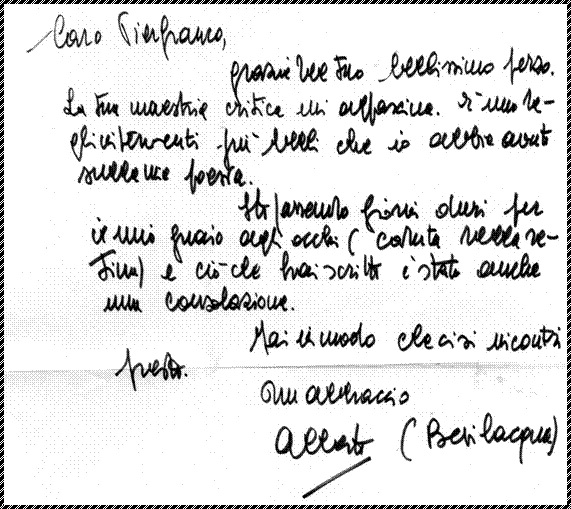 Caro Pierfranco,
grazie del tuo bellissimo pezzo.
La tua maestria critica mi affascina. È uno de-
gli interventi più belli che io abbia avuto
sulla mia poesia.
Sto passando giorni duri per
il mio guaio agli occhi (caduta della re-
tina) e ciò che hai scritto è stato anche
una consolazione.
Fai in modo che ci si incontri
presto.
Un abbraccio
Alberto (Bevilacqua)